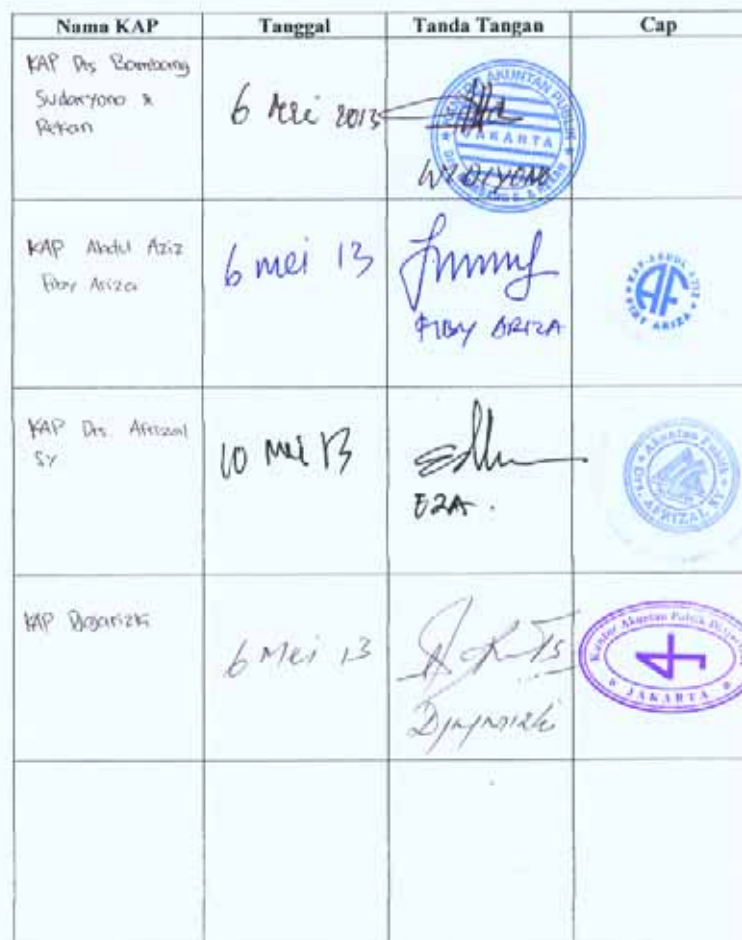 Nama KAP Tanggal Tanda Tangan Cap
KAP Drs Bambang
Sudaryono &
Rekan
6 Mei 2013
KANTOR AKUNTAN PUBLIK
JAKARTA
WIDIYONO
KAP Abdul Aziz
Fiby Ariza
6 mei 13
FIBY ARIZA
KAP ABDUL AZIZ
AF
FIBY ARIZA
KAP Drs. Afrizal
SY
10 Mei 13
EZA.
Akuntan Publik
Drs. AFRIZAL SY
KAP Djojarizki
6 Mei 13
Djojarizki
Kantor Akuntan Publik
JAKARTA